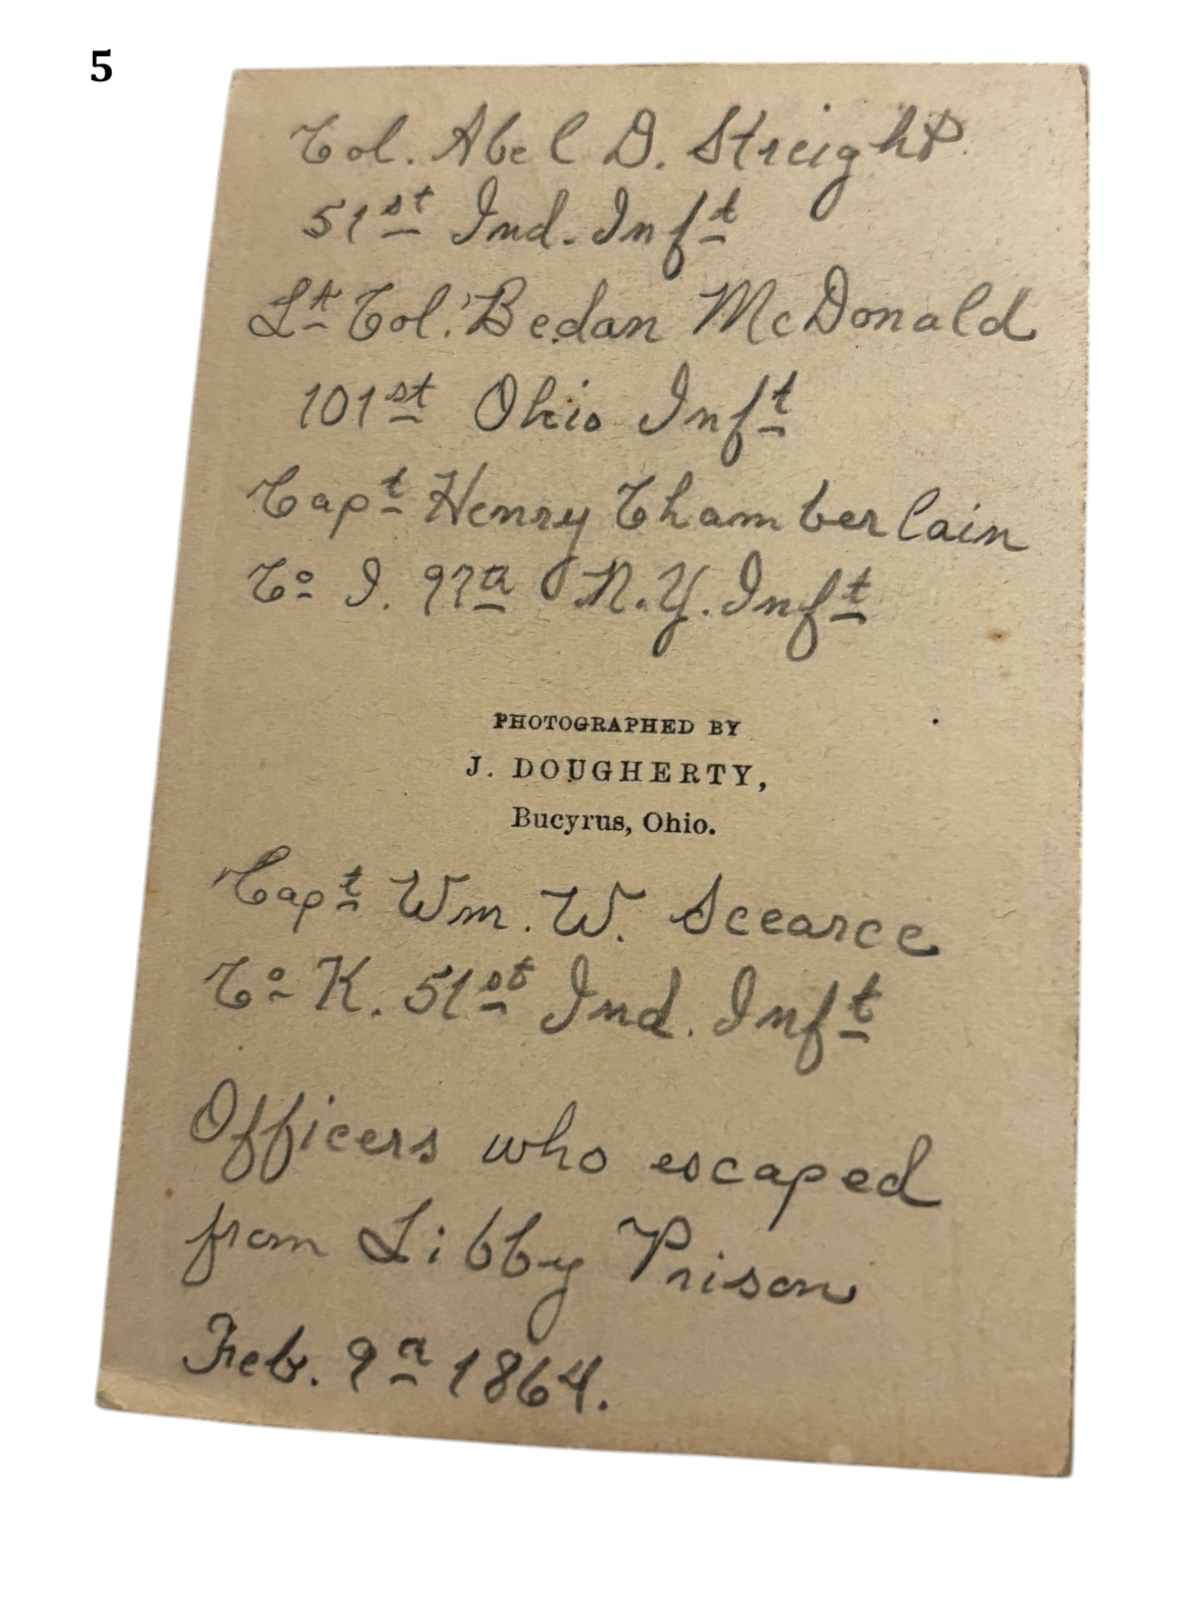 5
Col. Abel D. Streight
51st Ind. Inft
Lt Col. Bedan McDonald
101st Ohio Inft
Capt Henry Chamberlain
Co I. 97th N.Y. Inft
PHOTOGRAPHED BY
J. DOUGHERTY,
Bucyrus, Ohio.
Capt Wm. W. Scearce
Co K. 51st Ind. Inft
Officers who escaped
from Libby Prison
Feb. 9th 1864.